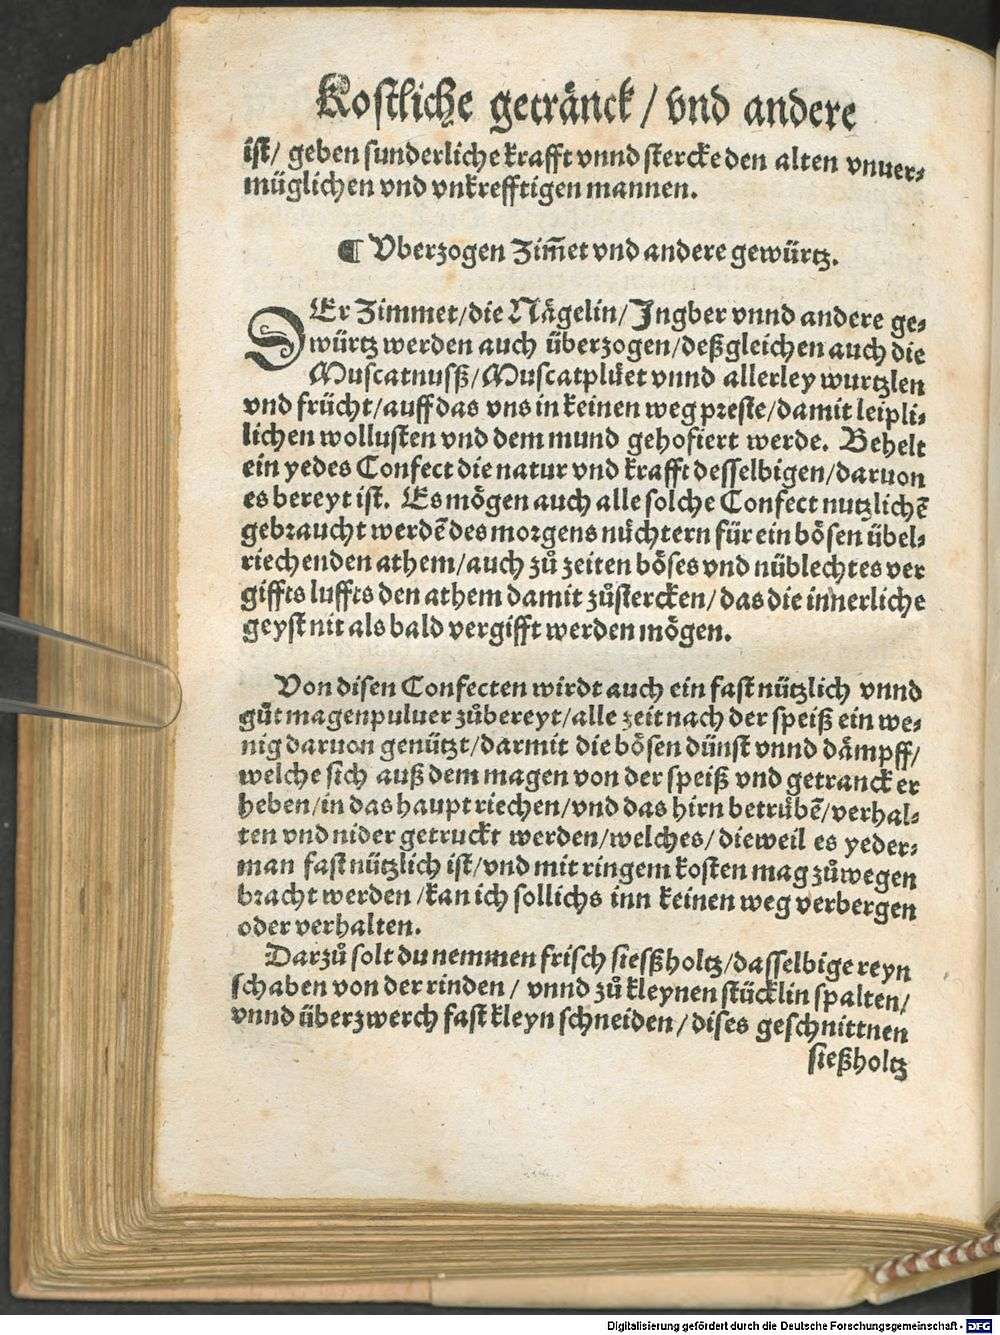 Kostliche getränck / vnd andere
ist/ geben sunderliche krafft vnnd stercke den alten vnuer-
müglichen vnd vnkrefftigen mannen.
¶ Vberzogen Zim̃et vnd andere gewürtz.
DEr Zimmet/die Nägelin/Ingber vnnd andere ge-
würtz werden auch überzogen/deßgleichen auch die
Muscatnusß/Muscatplüet vnnd allerley wurtzlen
vnd frücht/auff das vns in keinen weg preste/damit leipli-
lichen wollusten vnd dem mund gehofiert werde. Behelt
ein yedes Confect die natur vnd krafft desselbigen/daruon
es bereyt ist. Es mögen auch alle solche Confect nutzlichẽ
gebraucht werdẽ des morgens nüchtern für ein bösen übel-
riechenden athem/auch zů zeiten böses vnd nüblechtes ver
giffts luffts den athem damit zůstercken/das die innerliche
geyst nit als bald vergifft werden mögen.
Von disen Confecten wirdt auch ein fast nützlich vnnd
gůt magenpuluer zůbereyt/alle zeit nach der speiß ein we-
nig daruon genützt/darmit die bösen dünst vnnd dämpff/
welche sich auß dem magen von der speiß vnd getranck er
heben/in das haupt riechen/vnd das hirn betrübẽ/verhal-
ten vnd nider getruckt werden/welches/dieweil es yeder-
man fast nützlich ist/vnd mit ringem kosten mag zůwegen
bracht werden/kan ich sollichs inn keinen weg verbergen
oder verhalten.
Darzů solt du nemmen frisch siesßholtz/dasselbige reyn
schaben von der rinden / vnnd zů kleynen stücklin spalten/
vnnd überzwerch fast kleyn schneiden/dises geschnittnen
sießholtz
Digitalisierung gefördert durch die Deutsche Forschungsgemeinschaft - DFG